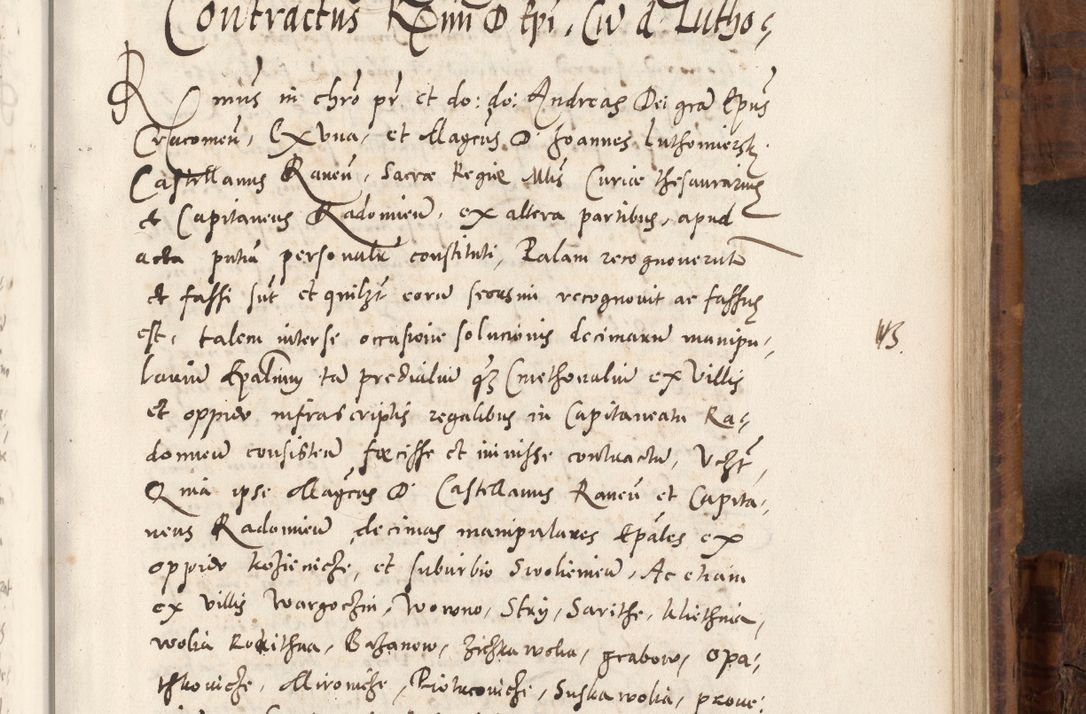 Contractus Rmi D Epi, Cu d Lutho-
Rmus in chro pr et do: do: Andreas Dei gra Epus
Cracouien, Ex vna, et Magcus D Joannes Luthomiersky
Castellanus Rauen, Sacræ Regiæ Mtis Curiæ thesaurarius
et Capitaneus Radomien, ex altera partibus, apud
acta putia personalr constituti, Palam recognouerut
et fassi sut et quilzt eoru seorsim recognouit ac fassus
est, talem inter se occasione solucionis decimaru manipu-
lariu Epalium ta predialiu qz Cmethonaliu ex villis
et oppido infrascriptis regalibus in Capitaneatu Ra-
domien consisten fecisse et inijsse contractu, Vczt,
Quia ipse Magcus D Castellanus Rauen et Capita-
neus Radomien, decimas manipulares Epales ex
oppido Kozieniche, et suburbio Swolienien, Ac etiam
ex villis Wargoczin, Wowno, Stry, Sarithe, Kliethnia,
wolia Rokithna, Brzanow, Zichka wolia, grabow, Opa-
thkoviche, Mironiche, Piotrcoviche, Suska wolia, proue: